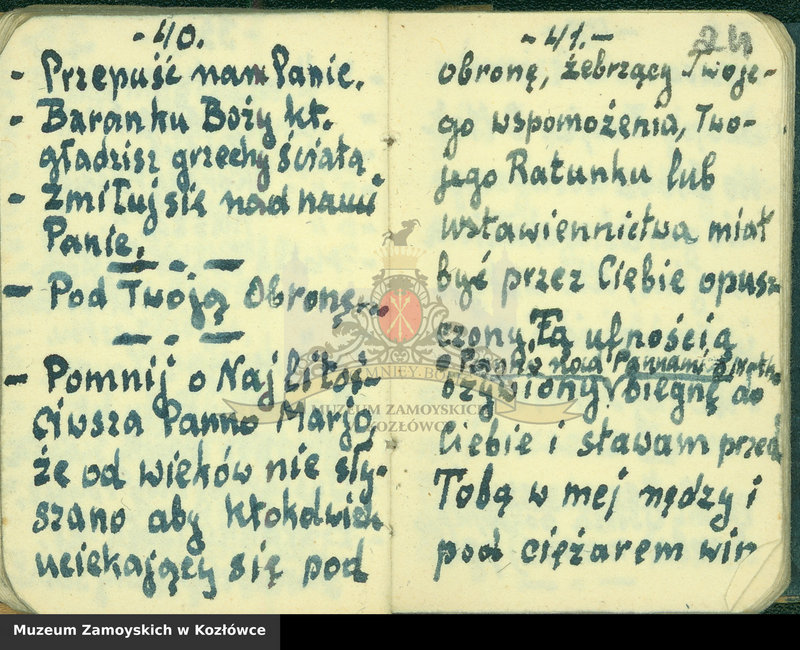 - 40. -
- Przepuść nam Panie.
- Baranku Boży kt.
gładzisz grzechy świata
- Zmiłuj się nad nami
Panie.
- Pod Twoją Obronę...
- Pomnij o Najlitoś-
ciwsza Panno Marjo,
że od wieków nie sły-
szano aby ktokolwiek
uciekający się pod
- 41. -
24
obronę, żebrzący Twoje-
go wspomożenia, Two-
jego Ratunku lub
wstawiennictwa miał
być przez Ciebie opusz-
czony. Tą ufnością
Panno nad Pannami
ożywiony biegnę do
Ciebie i stawam przed
Tobą w mej nędzy i
pod ciężarem win
MUZEUM ZAMOYSKICH
W KOZŁÓWCE
Muzeum Zamoyskich w Kozłówce